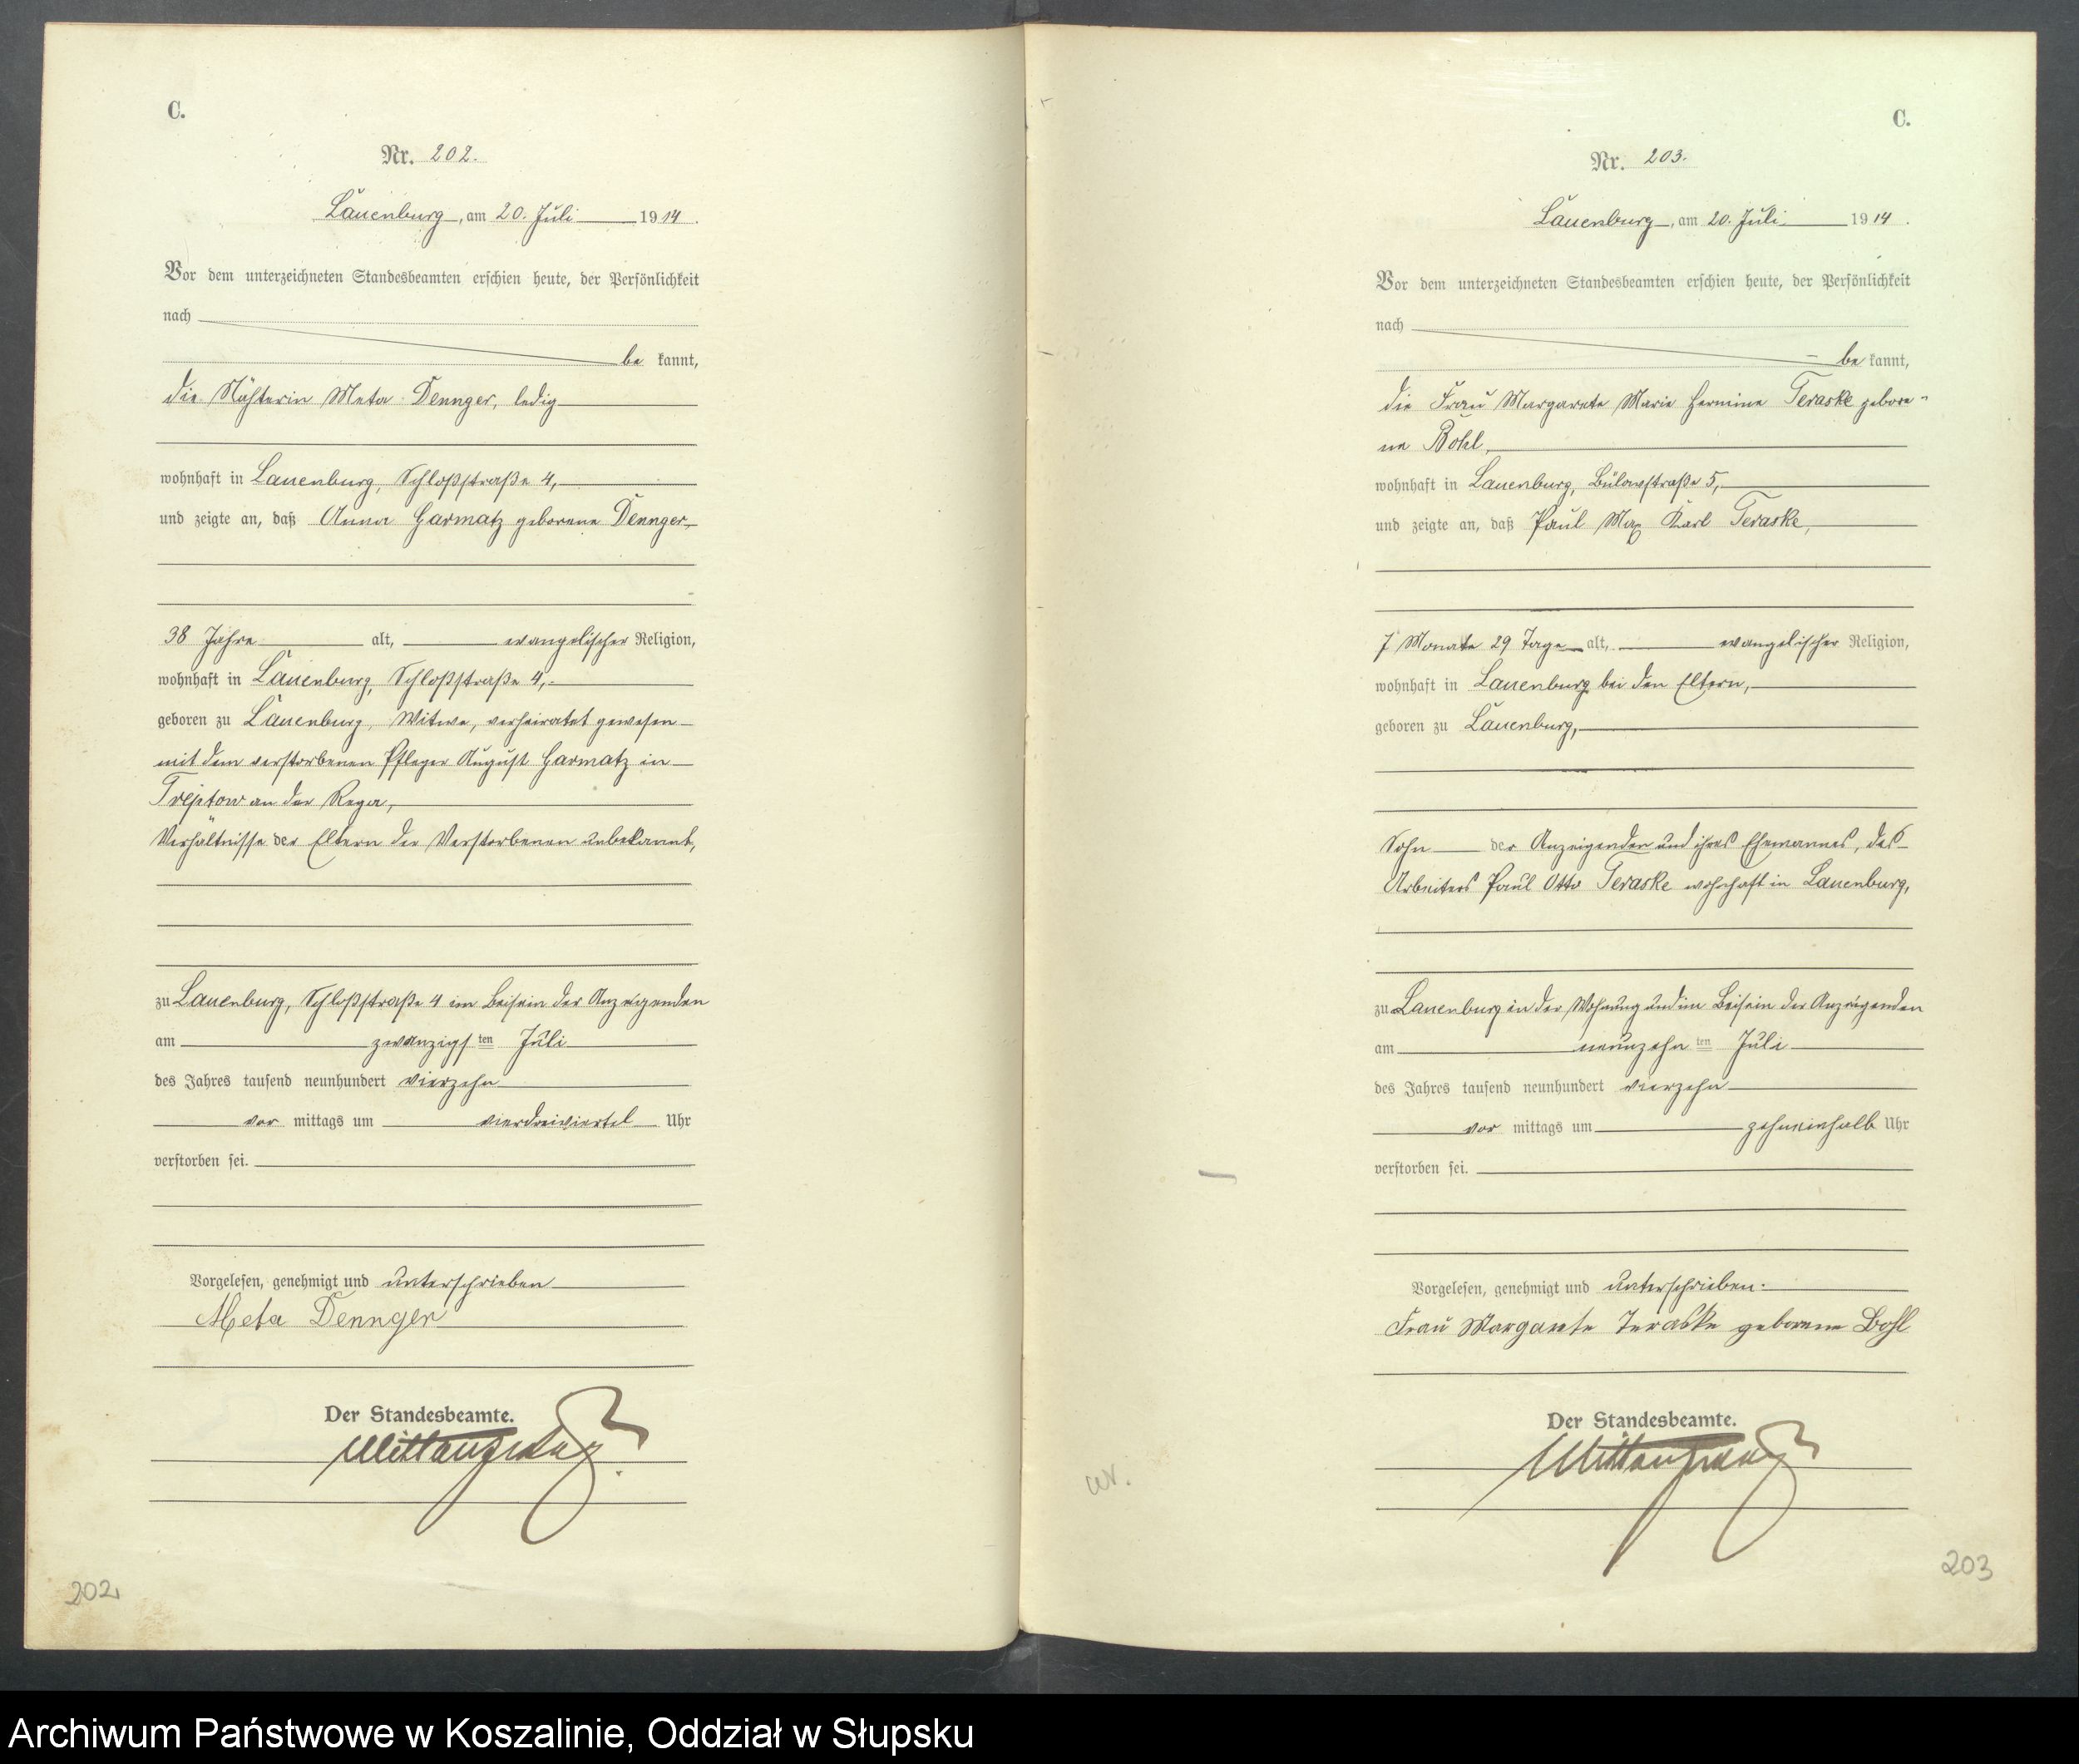 C.
Nr. 202.
Lauenburg, am 20. Juli 1914.
Vor dem unterzeichneten Standesbeamten erschien heute, der Persönlichkeit
nach
be kannt,
die Nähterin Meta Dennger, ledig
wohnhaft in Lauenburg, Schloßstraße 4,
und zeigte an, daß Anna Garmatz geborene Dennger,
38 Jahre alt, evangelischer Religion,
wohnhaft in Lauenburg, Schloßstraße 4,
geboren zu Lauenburg, Witwe, verheiratet gewesen
mit dem verstorbenen Pfleger August Garmatz in
Treptow an der Rega,
Verhältnisse der Eltern der Verstorbenen unbekannt,
zu Lauenburg, Schloßstraße 4 im Beisein der Anzeigenden
am zwanzigsten Juli
des Jahres tausend neunhundert vierzehn
vor mittags um vierdreiviertel Uhr
verstorben sei.
Vorgelesen, genehmigt und unterschrieben
Meta Dennger
Der Standesbeamte.
202
C.
Nr. 203.
Lauenburg, am 20. Juli 1914.
Vor dem unterzeichneten Standesbeamten erschien heute, der Persönlichkeit
nach
be kannt,
die Frau Margarete Marie Hermine Teraske gebore-
ne Bohl,
wohnhaft in Lauenburg, Bülowstraße 5,
und zeigte an, daß Paul Max Karl Teraske,
7 Monate 29 Tage alt, evangelischer Religion,
wohnhaft in Lauenburg bei den Eltern,
geboren zu Lauenburg,
Sohn der Anzeigenden und ihres Ehemannes, des
Arbeiters Paul Otto Teraske wohnhaft in Lauenburg,
zu Lauenburg in der Wohnung und im Beisein der Anzeigenden
am neunzehnten Juli
des Jahres tausend neunhundert vierzehn
vor mittags um zehneinhalb Uhr
verstorben sei.
Vorgelesen, genehmigt und unterschrieben.
Frau Margarete Teraske geborene Bohl
Der Standesbeamte.
203
Archiwum Państwowe w Koszalinie, Oddział w Słupsku